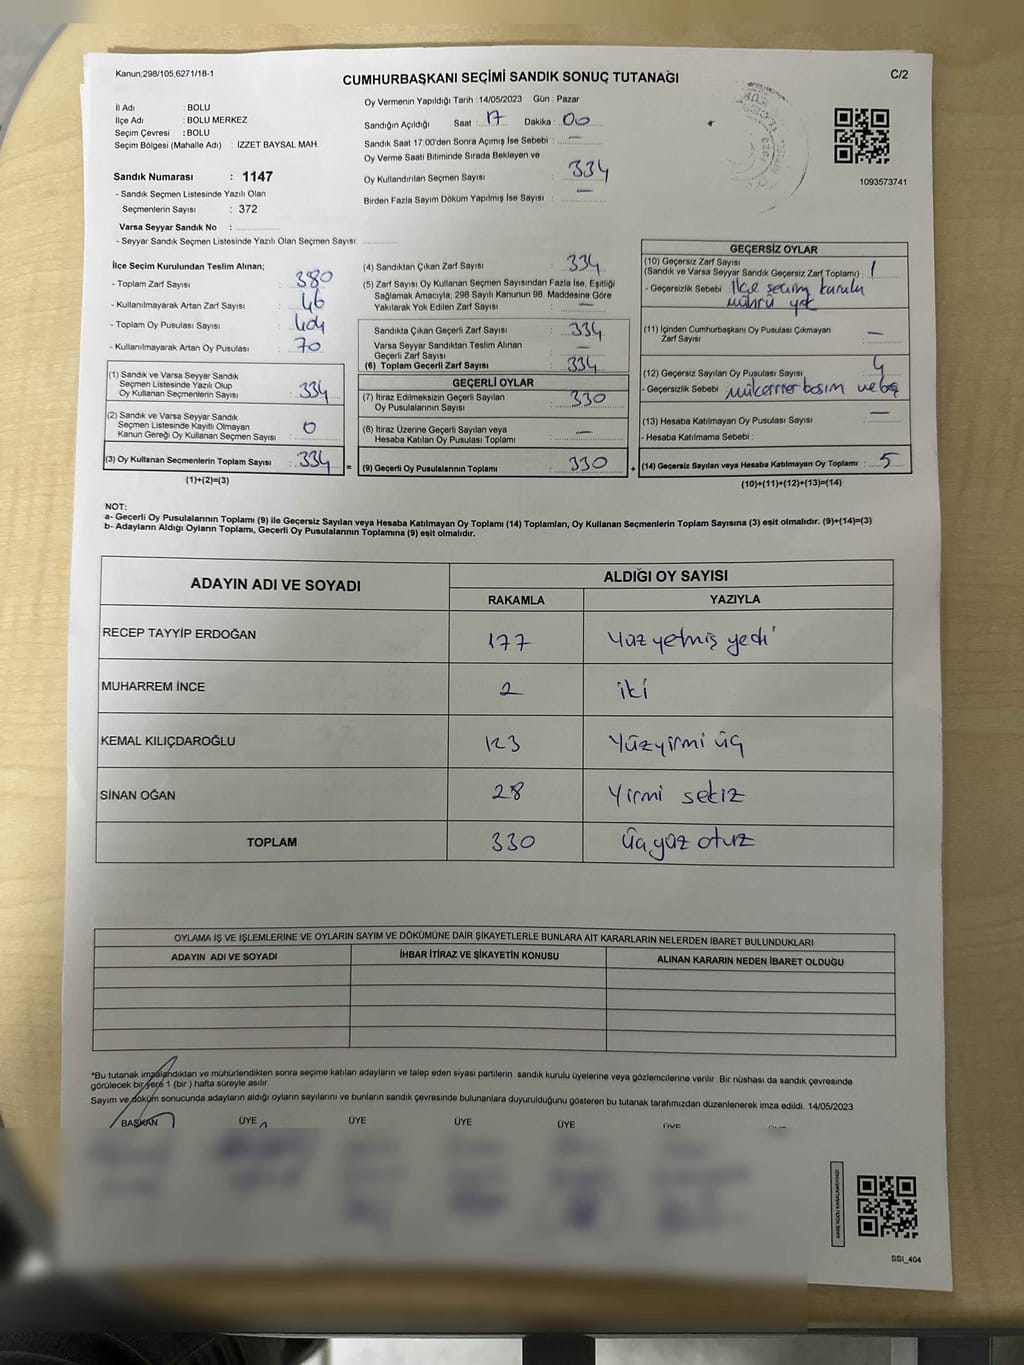 Kanun;298/105,6271/18-1
CUMHURBAŞKANI SEÇİMİ SANDIK SONUÇ TUTANAĞI
C/2
İl Adı : BOLU
İlçe Adı : BOLU MERKEZ
Seçim Çevresi : BOLU
Seçim Bölgesi (Mahalle Adı) : İZZET BAYSAL MAH.
Sandık Numarası : 1147
- Sandık Seçmen Listesinde Yazılı Olan
Seçmenlerin Sayısı : 372
Varsa Seyyar Sandık No :
- Seyyar Sandık Seçmen Listesinde Yazılı Olan Seçmen Sayısı:
Oy Vermenin Yapıldığı Tarih : 14/05/2023 Gün : Pazar
Sandığın Açıldığı Saat : 17 Dakika : 00
Sandık Saat 17:00'den Sonra Açımış İse Sebebi : —
Oy Verme Saati Bitiminde Sırada Bekleyen ve
Oy Kullandırılan Seçmen Sayısı : 334
Birden Fazla Sayım Döküm Yapılmış İse Sayısı : —
1093573741
İlçe Seçim Kurulundan Teslim Alınan;
- Toplam Zarf Sayısı : 380
- Kullanılmayarak Artan Zarf Sayısı : 46
- Toplam Oy Pusulası Sayısı : 404
- Kullanılmayarak Artan Oy Pusulası : 70
(1) Sandık ve Varsa Seyyar Sandık
Seçmen Listesinde Yazılı Olup
Oy Kullanan Seçmenlerin Sayısı : 334
(2) Sandık ve Varsa Seyyar Sandık
Seçmen Listesinde Kayıtlı Olmayan
Kanun Gereği Oy Kullanan Seçmen Sayısı : 0
(3) Oy Kullanan Seçmenlerin Toplam Sayısı : 334
(1)+(2)=(3)
(4) Sandıktan Çıkan Zarf Sayısı : 334
(5) Zarf Sayısı Oy Kullanan Seçmen Sayısından Fazla İse, Eşitliği
Sağlamak Amacıyla, 298 Sayılı Kanunun 98. Maddesine Göre
Yakılarak Yok Edilen Zarf Sayısı : —
Sandıkta Çıkan Geçerli Zarf Sayısı : 334
Varsa Seyyar Sandıktan Teslim Alınan
Geçerli Zarf Sayısı : —
(6) Toplam Geçerli Zarf Sayısı : 334
GEÇERLİ OYLAR
(7) İtiraz Edilmeksizin Geçerli Sayılan
Oy Pusulalarının Sayısı : 330
(8) İtiraz Üzerine Geçerli Sayılan veya
Hesaba Katılan Oy Pusulası Toplamı : —
= (9) Geçerli Oy Pusulalarının Toplamı : 330 +
GEÇERSİZ OYLAR
(10) Geçersiz Zarf Sayısı
(Sandık ve Varsa Seyyar Sandık Geçersiz Zarf Toplamı) : 1
- Geçersizlik Sebebi : İlçe seçim kurulu
mührü yok
(11) İçinden Cumhurbaşkanı Oy Pusulası Çıkmayan
Zarf Sayısı : —
(12) Geçersiz Sayılan Oy Pusulası Sayısı : 4
- Geçersizlik Sebebi : mükerrer basım ve boş
(13) Hesaba Katılmayan Oy Pusulası Sayısı : —
- Hesaba Katılmama Sebebi :
(14) Geçersiz Sayılan veya Hesaba Katılmayan Oy Toplamı : 5
(10)+(11)+(12)+(13)=(14)
NOT:
a- Geçerli Oy Pusulalarının Toplamı (9) ile Geçersiz Sayılan veya Hesaba Katılmayan Oy Toplamı (14) Toplamları, Oy Kullanan Seçmenlerin Toplam Sayısına (3) eşit olmalıdır. (9)+(14)=(3)
b- Adayların Aldığı Oyların Toplamı, Geçerli Oy Pusulalarının Toplamına (9) eşit olmalıdır.
ADAYIN ADI VE SOYADI
ALDIĞI OY SAYISI
RAKAMLA YAZIYLA
RECEP TAYYİP ERDOĞAN 177 Yüz yetmiş yedi
MUHARREM İNCE 2 iki
KEMAL KILIÇDAROĞLU 123 Yüzyirmi üç
SİNAN OĞAN 28 Yirmi sekiz
TOPLAM 330 Üçyüz otuz
OYLAMA İŞ VE İŞLEMLERİNE VE OYLARIN SAYIM VE DÖKÜMÜNE DAİR ŞİKAYETLERLE BUNLARA AİT KARARLARIN NELERDEN İBARET BULUNDUKLARI
ADAYIN ADI VE SOYADI İHBAR İTİRAZ VE ŞİKAYETİN KONUSU ALINAN KARARIN NEDEN İBARET OLDUĞU
*Bu tutanak imzalandıktan ve mühürlendikten sonra seçime katılan adayların ve talep eden siyasi partilerin sandık kurulu üyelerine veya gözlemcilerine verilir. Bir nüshası da sandık çevresinde
görülecek bir yere 1 (bir ) hafta süreyle asılır.
Sayım ve döküm sonucunda adayların aldığı oyların sayılarını ve bunların sandık çevresinde bulunanlara duyurulduğunu gösteren bu tutanak tarafımızdan düzenlenerek imza edildi. 14/05/2023
BAŞKAN ÜYE ÜYE ÜYE ÜYE ÜYE
SSI_404